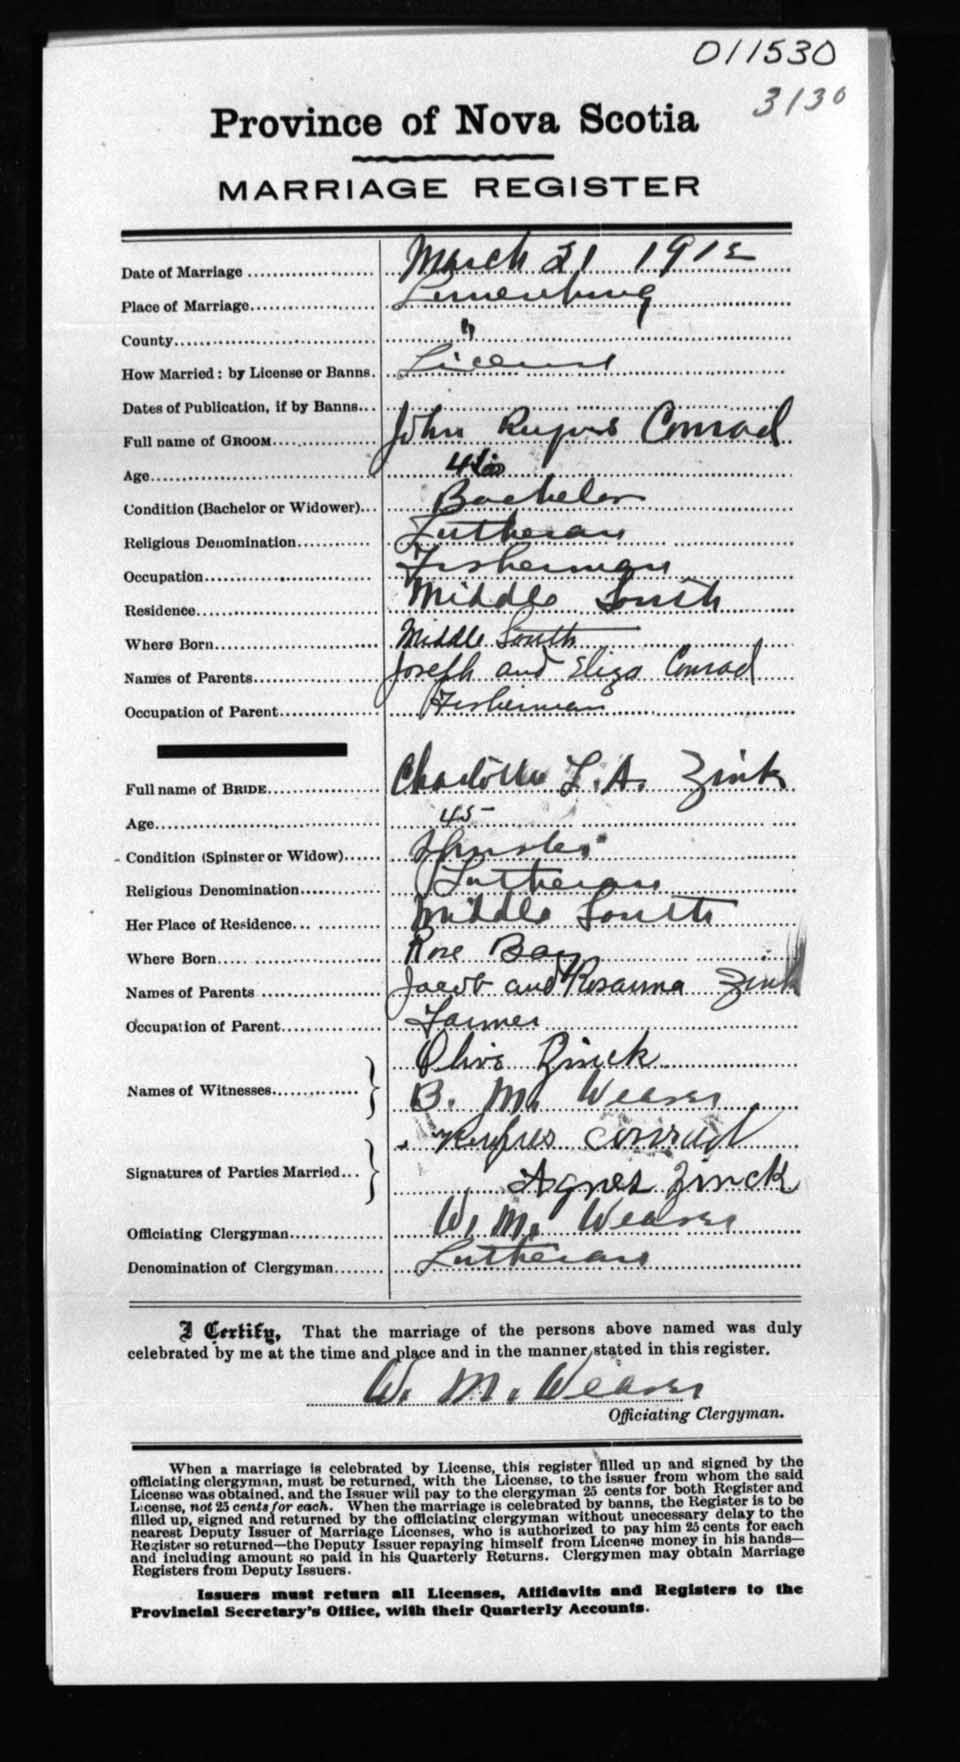 011530
3130
Province of Nova Scotia
MARRIAGE REGISTER
Date of Marriage ................... March 21 1912
Place of Marriage................... Lunenburg
County.............................. "
How Married: by License or Banns. License
Dates of Publication, if by Banns...
Full name of GROOM............... John Rufus Conrad
Age................................
Condition (Bachelor or Widower)... Bachelor
Religious Denomination............ Lutheran
Occupation......................... Fisherman
Residence.......................... Middle South
Where Born........................ Middle South
Names of Parents.................. Joseph and Eliza Conrad
Occupation of Parent.............. Fisherman
Full name of BRIDE................ Charlotte L. A. Zink
Age................................ 45
Condition (Spinster or Widow)...... Spinster
Religious Denomination............ Lutheran
Her Place of Residence... .......... Middle South
Where Born........................ Rose Bay
Names of Parents ................. Jacob and Rosanna Zink
Occupation of Parent.............. Farmer
Names of Witnesses.............. } Olive Zinck
B. M. Weaver
Signatures of Parties Married... } Rufus Conrad
Agnes Zinck
Officiating Clergyman.............. W. M. Weaver
Denomination of Clergyman........ Lutheran
I Certify, That the marriage of the persons above named was duly
celebrated by me at the time and place and in the manner stated in this register.
W. M. Weaver
Officiating Clergyman.
When a marriage is celebrated by License, this register filled up and signed by the
officiating clergyman, must be returned, with the License, to the issuer from whom the said
License was obtained, and the Issuer will pay to the clergyman 25 cents for both Register and
License, not 25 cents for each. When the marriage is celebrated by banns, the Register is to be
filled up, signed and returned by the officiating clergyman without unecessary delay to the
nearest Deputy Issuer of Marriage Licenses, who is authorized to pay him 25 cents for each
Register so returned—the Deputy Issuer repaying himself from License money in his hands—
and including amount so paid in his Quarterly Returns. Clergymen may obtain Marriage
Registers from Deputy Issuers.
Issuers must return all Licenses, Affidavits and Registers to the
Provincial Secretary's Office, with their Quarterly Accounts.